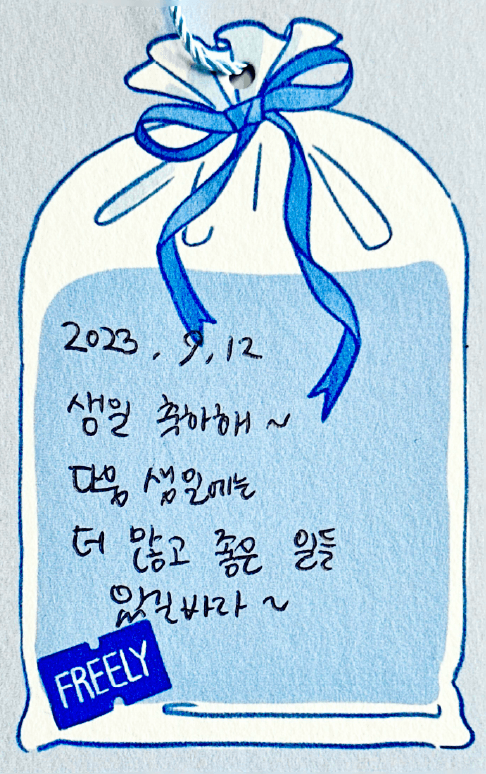 2023. 9. 12
생일 축하해~
다음 생일에는
더 많고 좋은 일들
있길바라~
FREELY